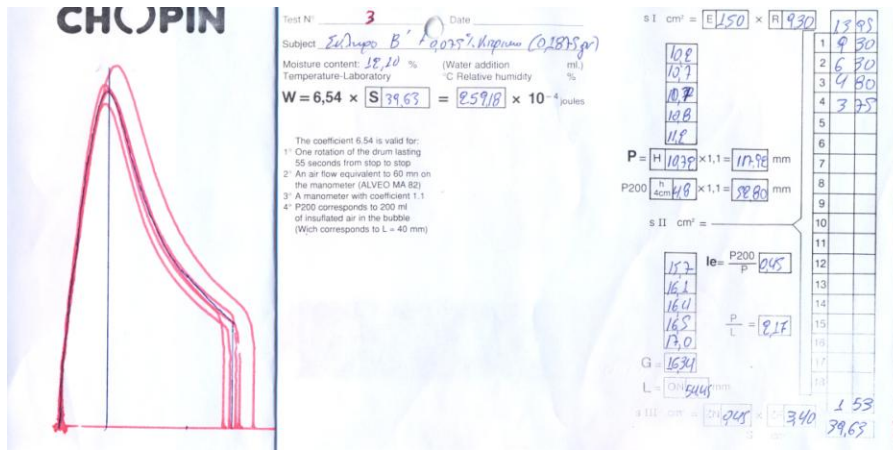 CHOPIN
Test N° 3 Date
Subject Σκληρο Β΄ + 0,075% (0,1875gr)
Moisture content: 12,10 % (Water addition ml.)
Temperature-Laboratory °C Relative humidity %
W = 6,54 × S 39,63 = 259,18 × 10⁻⁴ joules
The coefficient 6.54 is valid for:
1° One rotation of the drum lasting
55 seconds from stop to stop
2° An air flow equivalent to 60 mn on
the manometer (ALVEO MA 82)
3° A manometer with coefficient 1.1
4° P200 corresponds to 200 ml
of insuflated air in the bubble
(Wich corresponds to L = 40 mm)
s I cm² = E 1,50 × R 9,30
10,2
10,7
10,7
10,8
11,2
P = H 10,72 ×1,1 = 117,92 mm
P200 h 4cm 4,8 ×1,1 = 52,80 mm
s II cm² =
15,7
16,1
16,4
16,5
17,0
Ie = P200 / P 0,45
P / L = 2,17
G = 16,34
L = 54,45 mm
s III cm² = 0,45 × 3,40
13 95
1 9 30
2 6 30
3 4 80
4 3 75
5
6
7
8
9
10
11
12
13
14
15
16
17
18
1 53
39,63